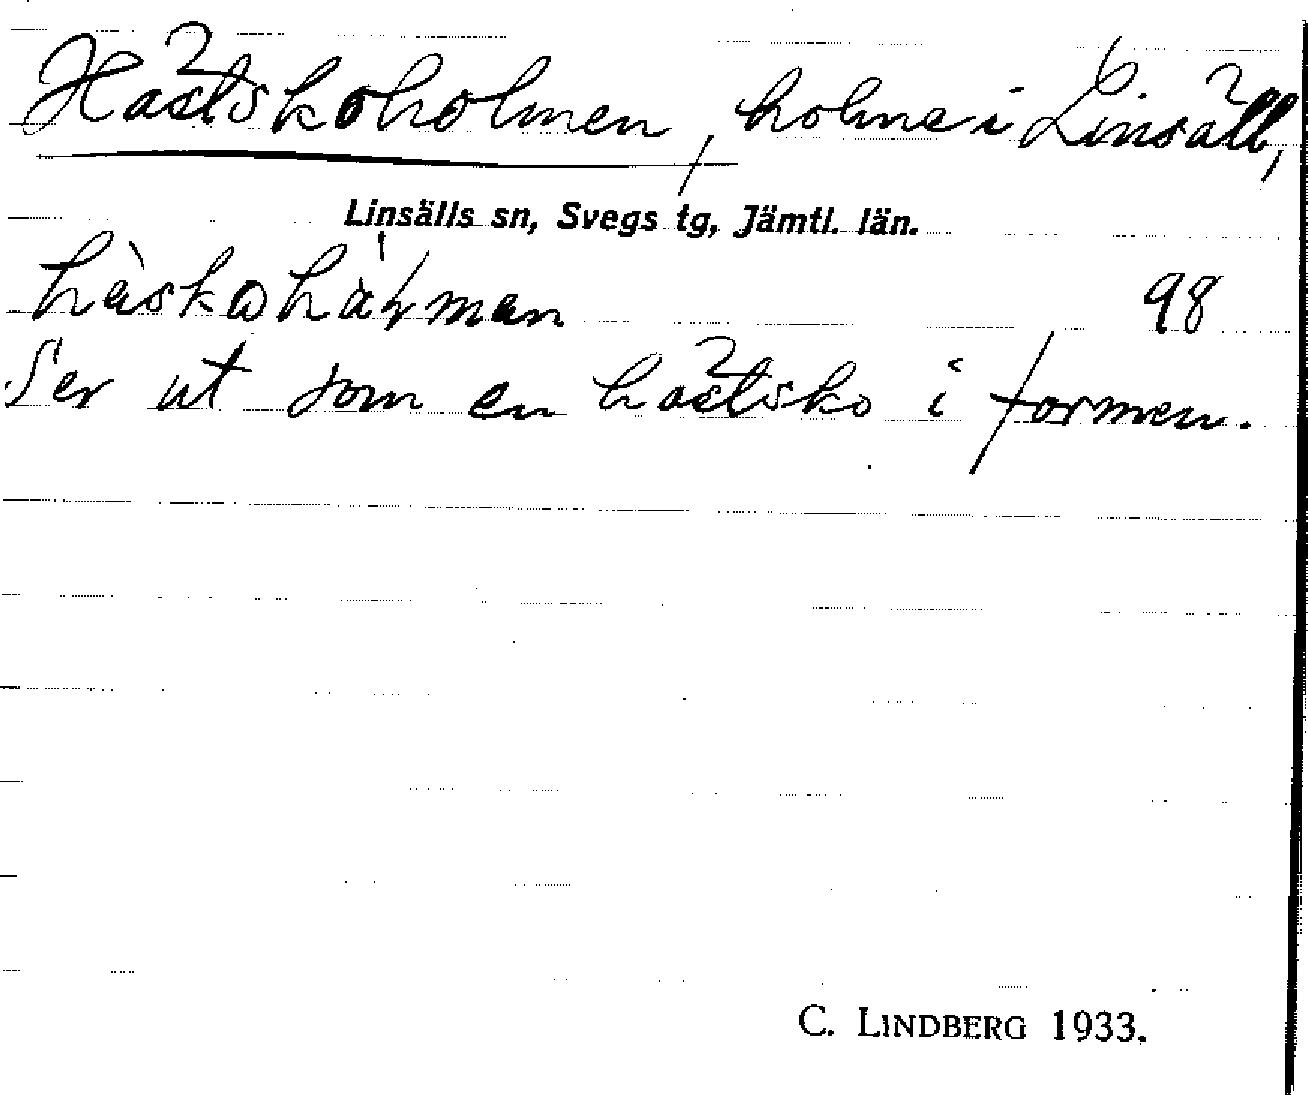 Hästskoholmen, holme i Linsäll,
Linsälls sn, Svegs tg, Jämtl. län.
98
Ser ut som en hästsko i formen.
C. LINDBERG 1933.